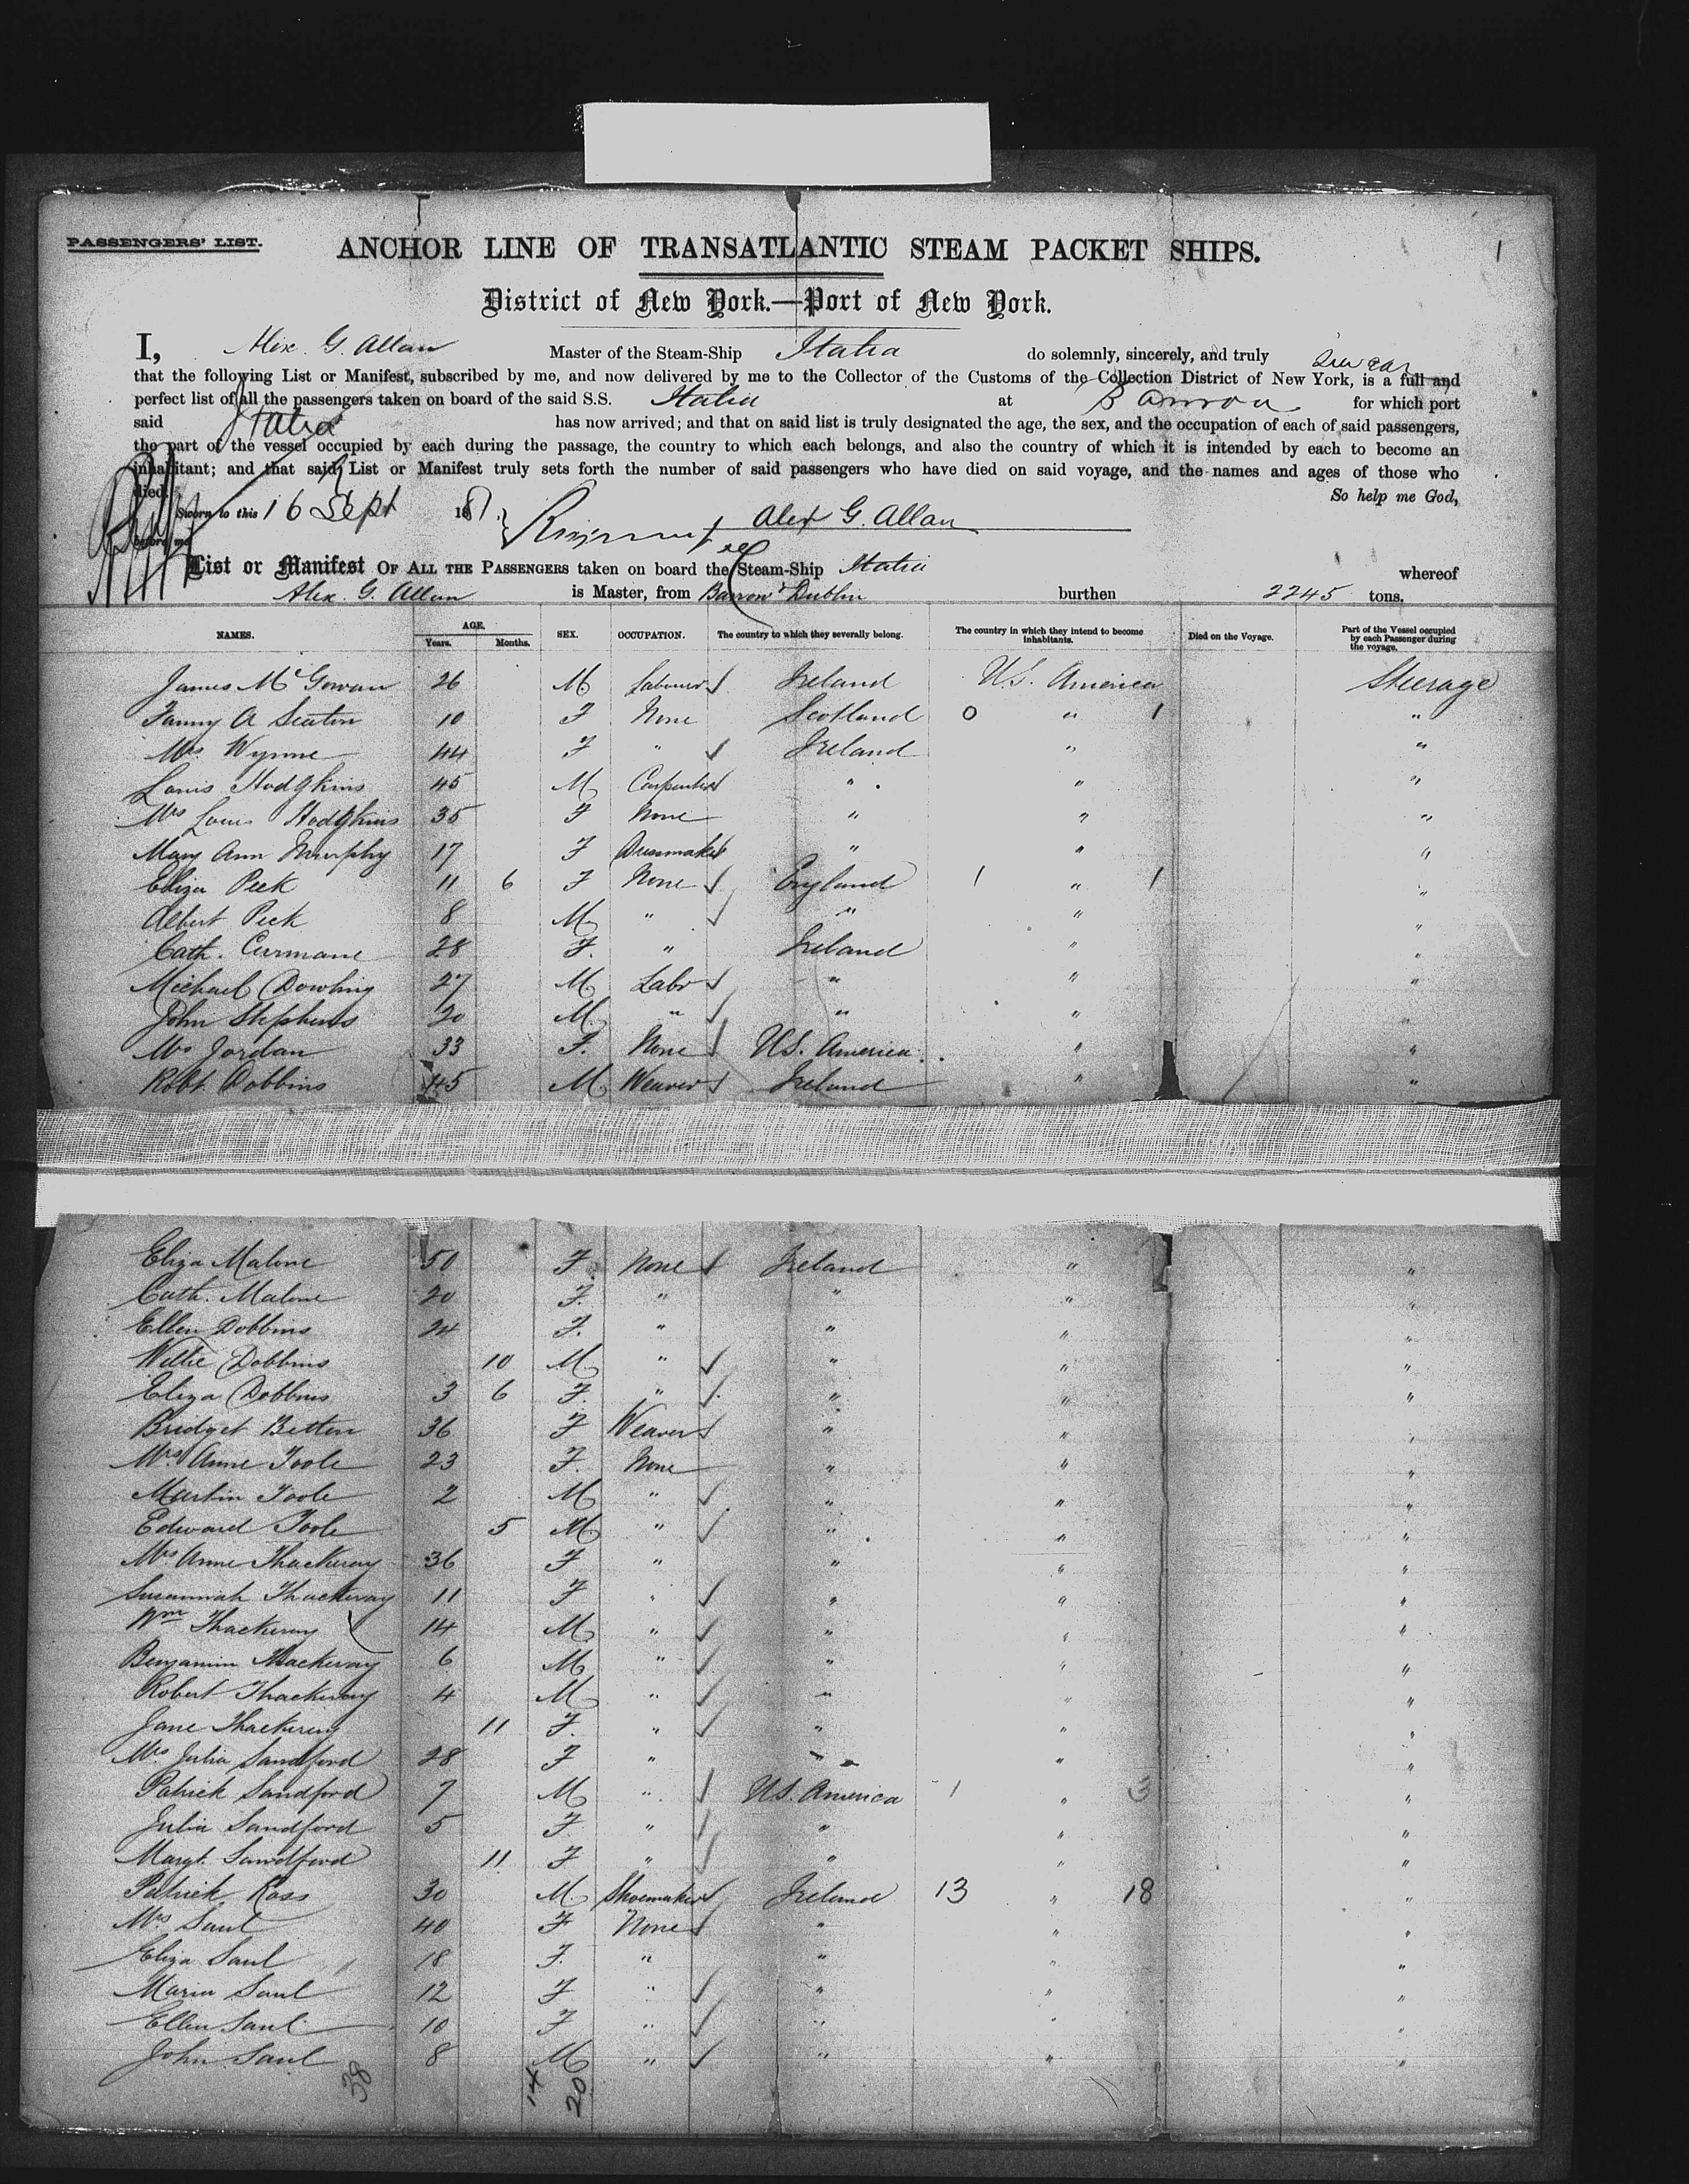 1
PASSENGERS' LIST.
ANCHOR LINE OF TRANSATLANTIC STEAM PACKET SHIPS.
District of New York.—Port of New York.
I, Alex. G. Allan Master of the Steam-Ship Italia do solemnly, sincerely, and truly swear
that the following List or Manifest, subscribed by me, and now delivered by me to the Collector of the Customs of the Collection District of New York, is a full and
perfect list of all the passengers taken on board of the said S.S. Italia at Barrow for which port
said Italia has now arrived; and that on said list is truly designated the age, the sex, and the occupation of each of said passengers,
the part of the vessel occupied by each during the passage, the country to which each belongs, and also the country of which it is intended by each to become an
inhabitant; and that said List or Manifest truly sets forth the number of said passengers who have died on said voyage, and the names and ages of those who
died. So help me God,
Sworn to this 16 Sept 1881 Alex G. Allan
before me
List or Manifest OF ALL THE PASSENGERS taken on board the Steam-Ship Italia whereof
Alex. G. Allan is Master, from Barrow & Dublin burthen 2245 tons.
NAMES. AGE. Years. Months. SEX. OCCUPATION. The country to which they severally belong. The country in which they intend to become inhabitants. Died on the Voyage. Part of the Vessel occupied by each Passenger during the voyage.
James McGowan 26 M Labourer Ireland U.S. America Steerage
Fanny A Seaton 10 F None Scotland 0 " 1 "
Mrs Wynne 44 F " Ireland " "
Louis Hodgkins 45 M Carpenter " " "
Mrs Louis Hodgkins 35 F None " " "
Mary Ann Murphy 17 F Dressmaker " " "
Eliza Peck 11 6 F None England 1 " 1 "
Albert Peck 8 M " " " "
Cath. 28 F. " Ireland " "
Michael Dowling 27 M Labr " " "
John Stephens 20 M " " " "
Mrs Jordan 33 F. None U.S. America " "
Robt. Dobbins 45 M Weaver Ireland " "
Eliza Malone 50 F None Ireland " "
Cath. Malone 20 F. " " " "
Ellen Dobbins 24 F. " " " "
Willie Dobbins 10 M " " " "
Eliza Dobbins 3 6 F. " " " "
Bridget Betton 36 F Weaver " " "
Mrs Anne Toole 23 F. None " " "
Martin Toole 2 M " " " "
Edward Toole 5 M " " " "
Mrs Anne Thackeray 36 F " " " "
Susannah Thackeray 11 F " " " "
Wm Thackeray 14 M " " " "
Benjamin Thackeray 6 M " " " "
Robert Thackeray 4 M " " " "
Jane Thackeray 11 F. " " " "
Mrs Julia Sandford 28 F " " " "
Patrick Sandford 7 M " U.S. America 1 " 3 "
Julia Sandford 5 F " " " "
Margt. Sandford 11 F " " " "
Patrick Ross 30 M Shoemaker Ireland 13 " 18 "
Mrs Saul 40 F None " " "
Eliza Saul 18 F. " " " "
Maria Saul 12 F " " " "
Ellen Saul 10 F " " " "
John Saul 8 M " " " "
38 14 20